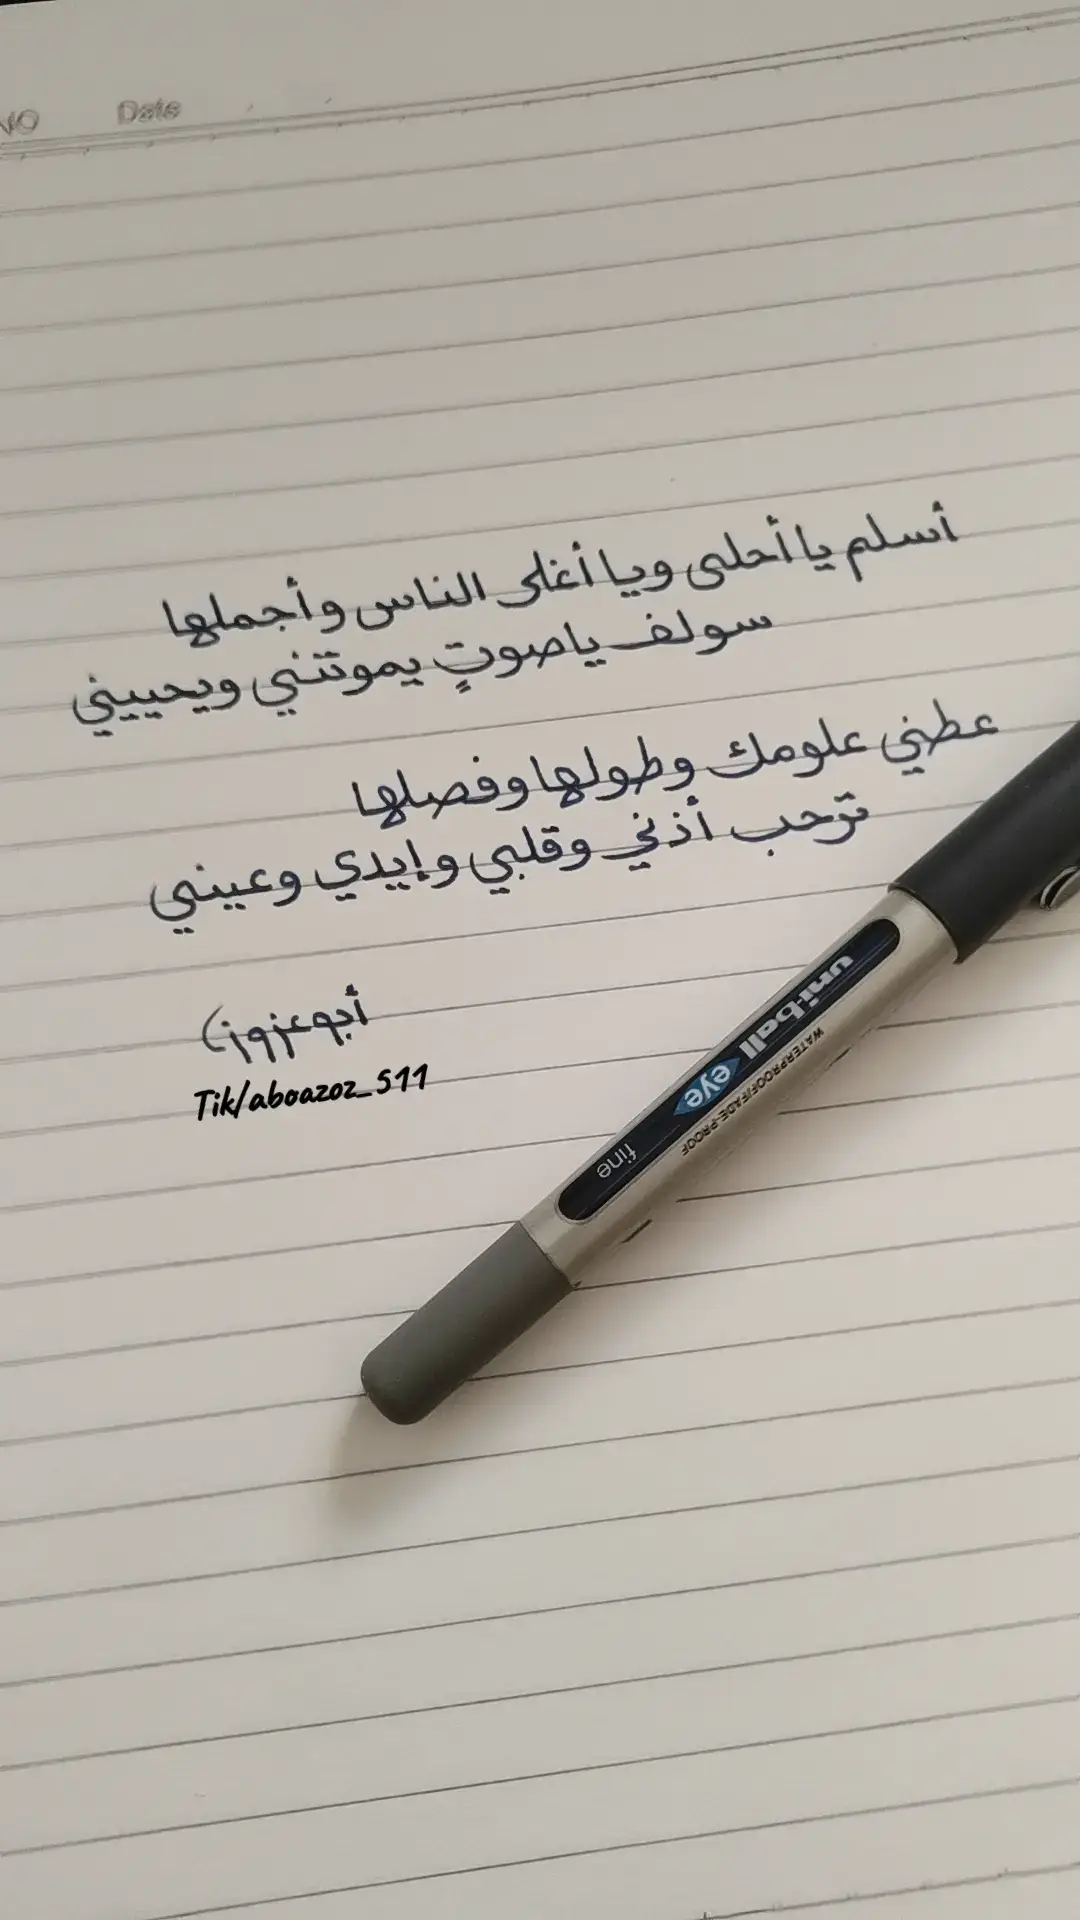 NO Date
أسلم يا أحلى ويا أغلى الناس وأجملها
سولف ياصوتٍ يموتني ويحييني
عطني علومك وطولها وفصلها
ترحب أذني وقلبي وإيدي وعيني
أبوعزوز
Tik/aboazoz_511
uni-ball eye fine
WATERPROOF/FADE-PROOF